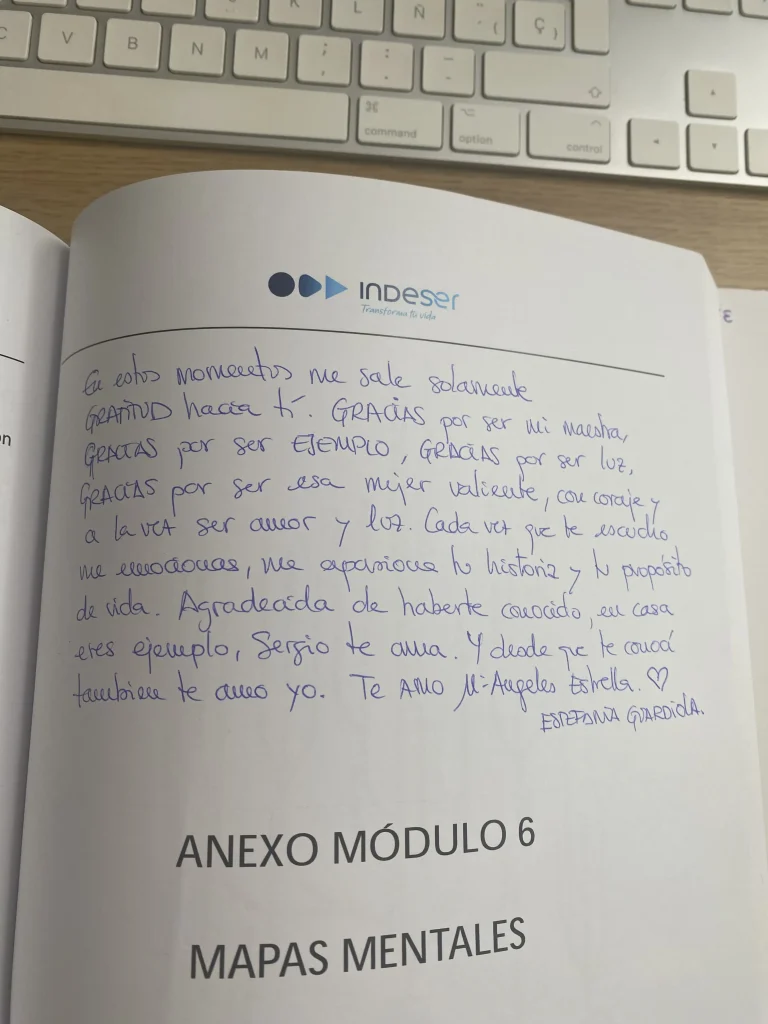 K L Ñ Ç }
C V B N M ; , : . _ -
⌘ command
⌥ option
^ control
INDESER
Transforma tu vida
En estos momentos me sale solamente
GRATITUD hacia tí. GRACIAS por ser mi maestra,
GRACIAS por ser EJEMPLO, GRACIAS por ser luz,
GRACIAS por ser esa mujer valiente, con coraje y
a la vez ser amor y luz. Cada vez que te escucho
me emocionas, me apasiona tu historia y tu propósito
de vida. Agradecida de haberte conocido, en casa
eres ejemplo, Sergio te ama. Y desde que te conocí
tambien te amo yo. Te AMO Mª Angeles Estrella. ♡
ESTEFANÍA GUARDIOLA.
ANEXO MÓDULO 6
MAPAS MENTALES